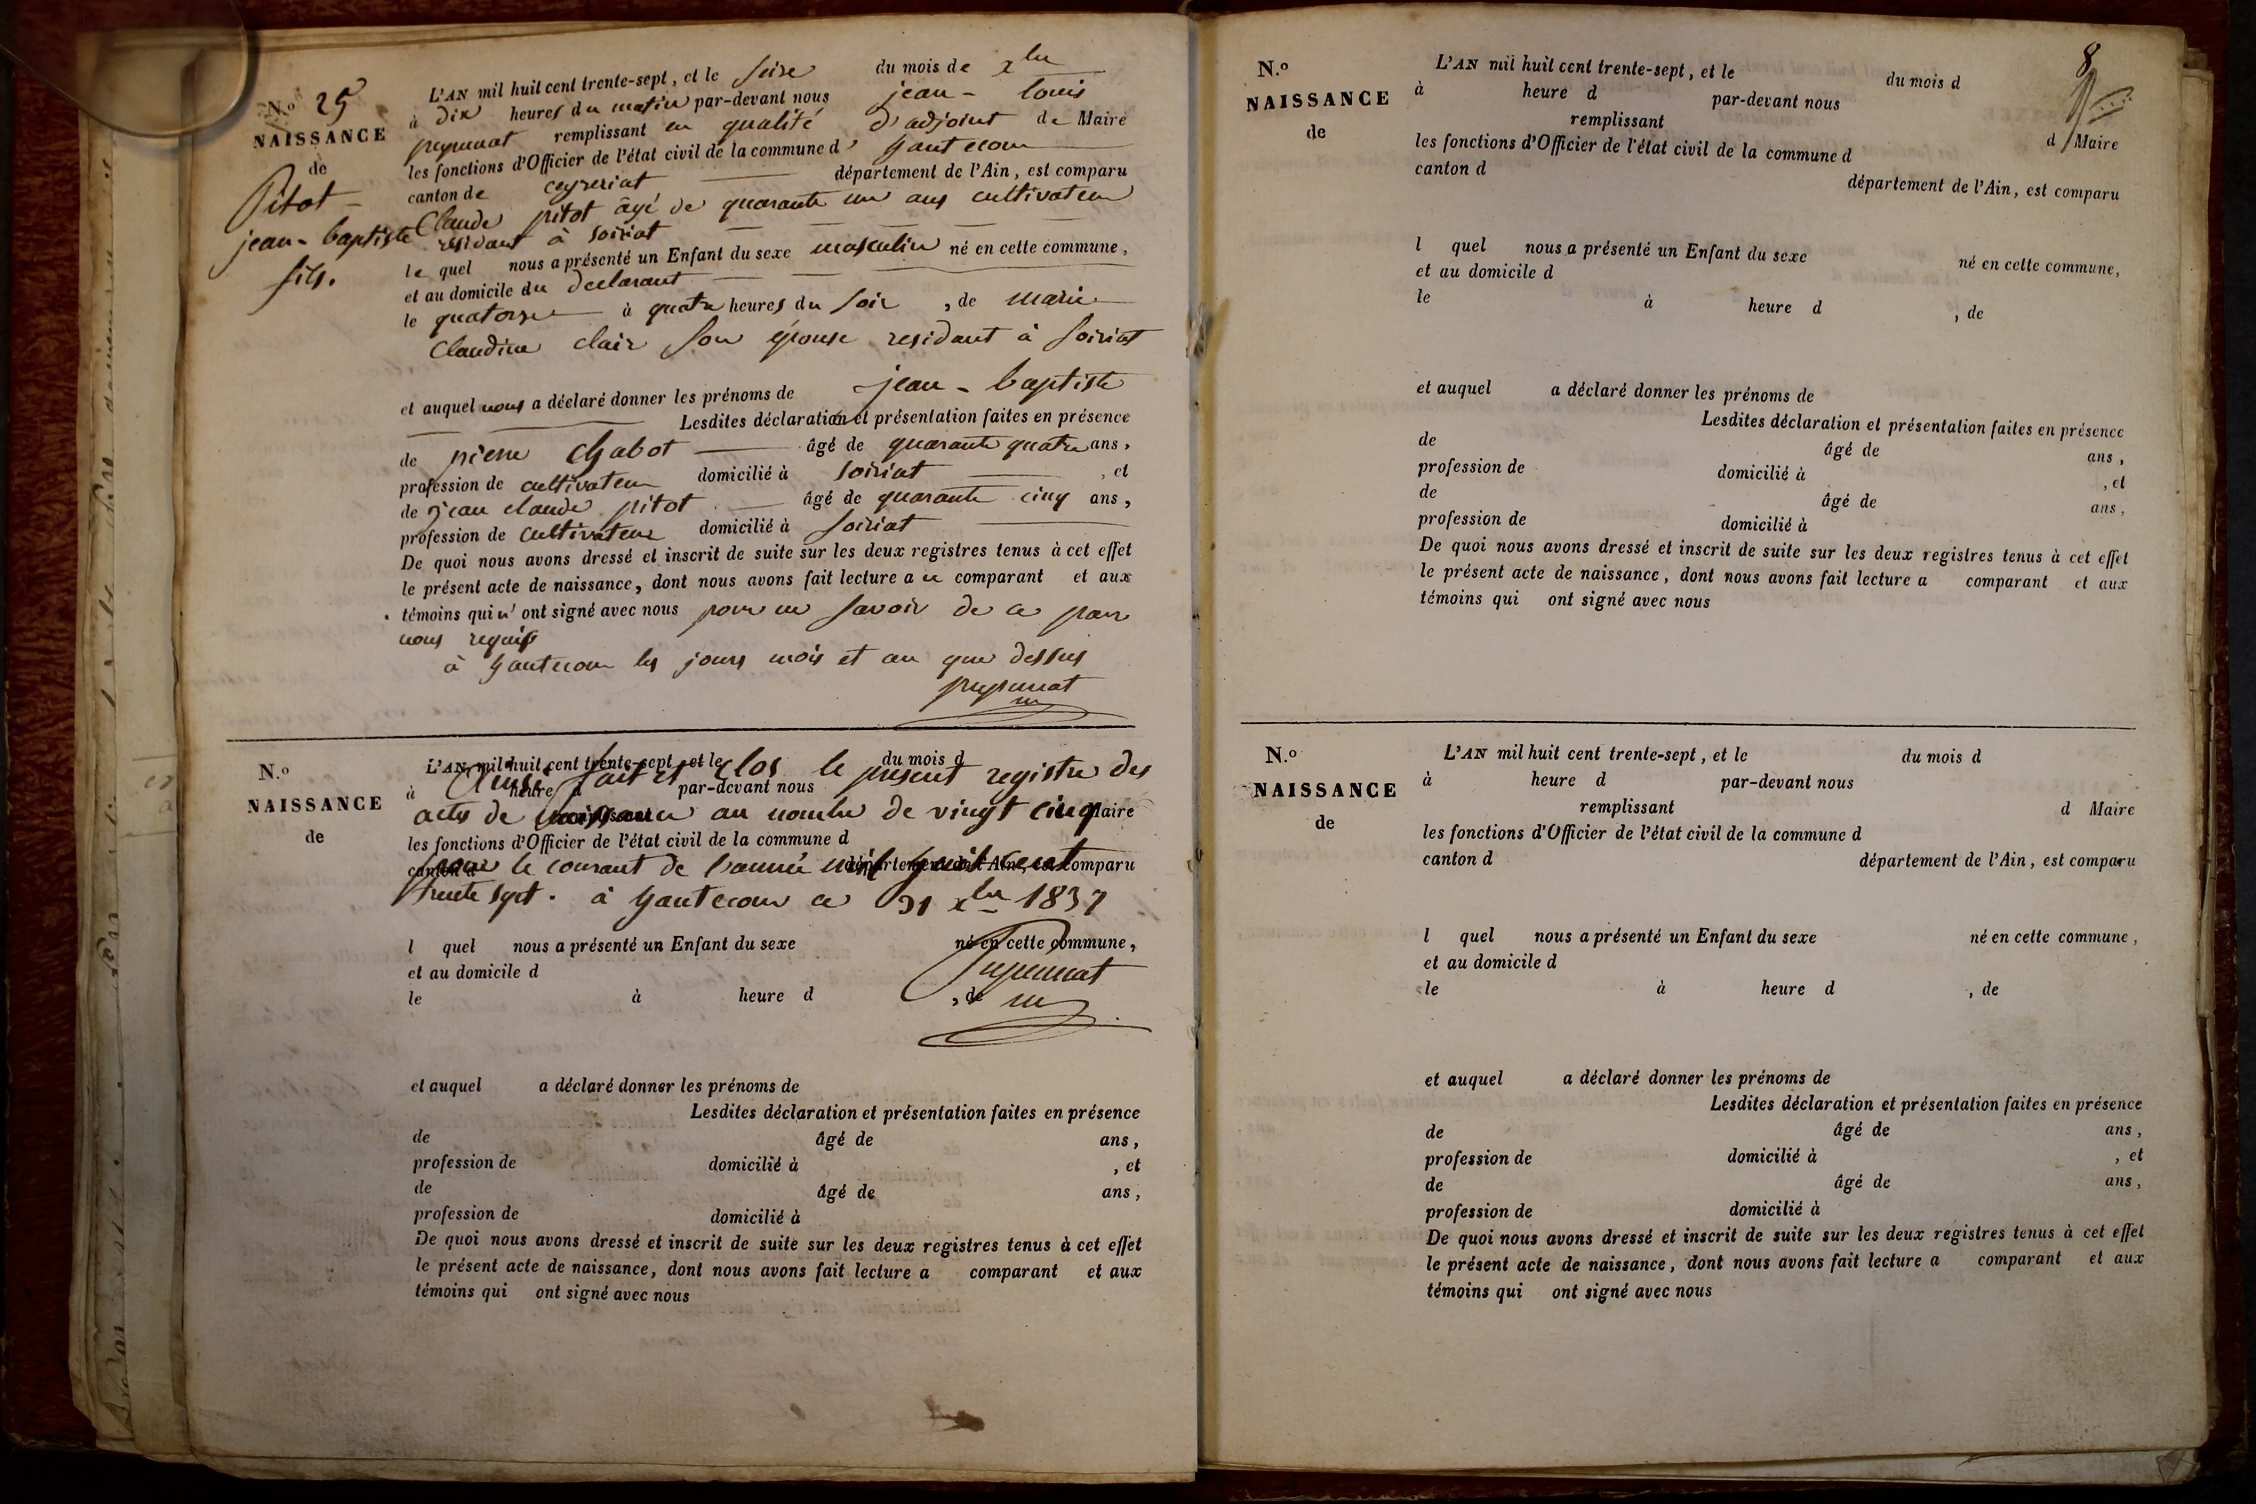 N.º 25
NAISSANCE
de
Pitot
jean-baptiste
fils.
L'AN mil huit cent trente-sept, et le seize du mois de xbre
à dix heures du matin par-devant nous jean-louis
remplissant en qualité d'adjoint de Maire
les fonctions d'Officier de l'état civil de la commune d'hautecour
canton de ceyzeriat département de l'Ain, est comparu
Claude pitot âgé de quarante un ans cultivateur
résidant à soiriat
le quel nous a présenté un Enfant du sexe masculin né en cette commune,
et au domicile du declarant
le quatorze à quatre heures du soir, de marie
Claudine clair son épouse residant à soiriat
et auquel nous a déclaré donner les prénoms de jean-baptiste
Lesdites déclaration et présentation faites en présence
de pierre Chabot âgé de quarante quatre ans,
profession de cultivateur domicilié à soiriat, et
de jean claude pitot âgé de quarante cinq ans,
profession de cultivateur domicilié à soiriat
De quoi nous avons dressé et inscrit de suite sur les deux registres tenus à cet effet
le présent acte de naissance, dont nous avons fait lecture au comparant et aux
témoins qui n'ont signé avec nous pour ne savoir de ce par
nous requis
à hautecour les jours mois et an que dessus
N.º
NAISSANCE
de
L'AN mil huit cent trente-sept, et le du mois d
Ainsi fait et clos le présent registre des
à heure d par-devant nous
actes de naissance au nombre de vingt cinq
remplissant Maire
les fonctions d'Officier de l'état civil de la commune d
pour le courant de l'année mil huit cent
canton d département de l'Ain, est comparu
trente sept. à hautecour ce 31 xbre 1837
l quel nous a présenté un Enfant du sexe né en cette commune,
et au domicile d
le à heure d , de
et auquel a déclaré donner les prénoms de
Lesdites déclaration et présentation faites en présence
de âgé de ans,
profession de domicilié à , et
de âgé de ans,
profession de domicilié à
De quoi nous avons dressé et inscrit de suite sur les deux registres tenus à cet effet
le présent acte de naissance, dont nous avons fait lecture a comparant et aux
témoins qui ont signé avec nous
8
N.º
NAISSANCE
de
L'AN mil huit cent trente-sept, et le du mois d
à heure d par-devant nous
remplissant d Maire
les fonctions d'Officier de l'état civil de la commune d
canton d département de l'Ain, est comparu
l quel nous a présenté un Enfant du sexe né en cette commune,
et au domicile d
le à heure d , de
et auquel a déclaré donner les prénoms de
Lesdites déclaration et présentation faites en présence
de âgé de ans,
profession de domicilié à , et
de âgé de ans,
profession de domicilié à
De quoi nous avons dressé et inscrit de suite sur les deux registres tenus à cet effet
le présent acte de naissance, dont nous avons fait lecture a comparant et aux
témoins qui ont signé avec nous
N.º
NAISSANCE
de
L'AN mil huit cent trente-sept, et le du mois d
à heure d par-devant nous
remplissant d Maire
les fonctions d'Officier de l'état civil de la commune d
canton d département de l'Ain, est comparu
l quel nous a présenté un Enfant du sexe né en cette commune,
et au domicile d
le à heure d , de
et auquel a déclaré donner les prénoms de
Lesdites déclaration et présentation faites en présence
de âgé de ans,
profession de domicilié à , et
de âgé de ans,
profession de domicilié à
De quoi nous avons dressé et inscrit de suite sur les deux registres tenus à cet effet
le présent acte de naissance, dont nous avons fait lecture a comparant et aux
témoins qui ont signé avec nous